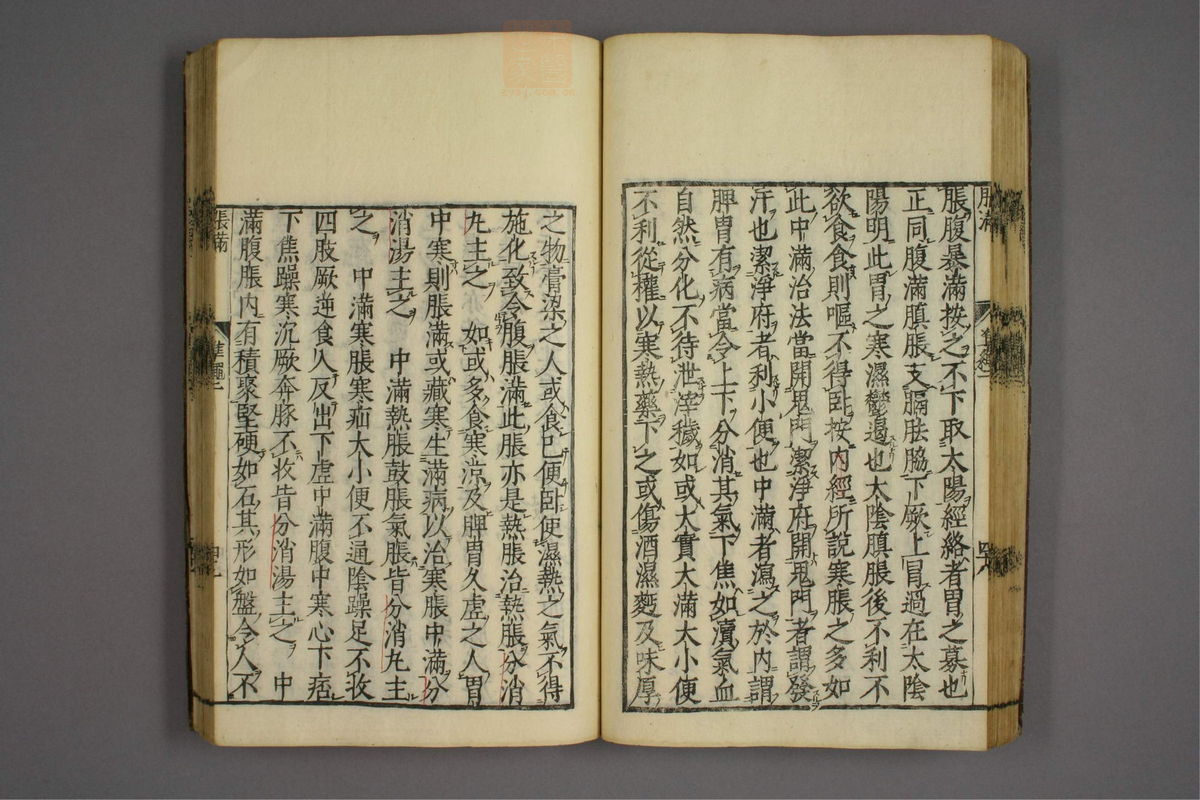 脹腹暴滿按之不下取太陽經絡者胃之募也
正同腹滿䐜脹支膈胠脇下厥上冒過在太陰
陽明此胃之寒濕鬱遏也太陰䐜脹後不利不
欲食食則嘔不得臥按內經所說寒脹之多如
此中滿治法當開鬼門潔淨府開鬼門者謂發
汗也潔淨府者利小便也中滿者瀉之於內謂
脾胃有病當令上下分消其氣下焦如瀆氣血
自然分化不待泄滓穢如或大實大滿大小便
不利從權以寒熱藥下之或傷酒濕麪及味厚
之物膏粱之人或食已便卧使濕熱之氣不得
施化致令腹脹滿此脹亦是熱脹治熱脹分消
丸主之 如或多食寒涼及脾胃久虛之人胃
中寒則脹滿或藏寒生滿病以治寒脹中滿分
消湯主之 中滿熱脹鼓脹氣脹皆分消丸主
之 中滿寒脹寒疝大小便不通陰躁足不收
四肢厥逆食入反出下虛中滿腹中寒心下痞
下焦躁寒沉厥奔豚不收皆分消湯主之 中
滿腹脹內有積聚堅硬如石其形如盤令人不
脹滿
準繩二